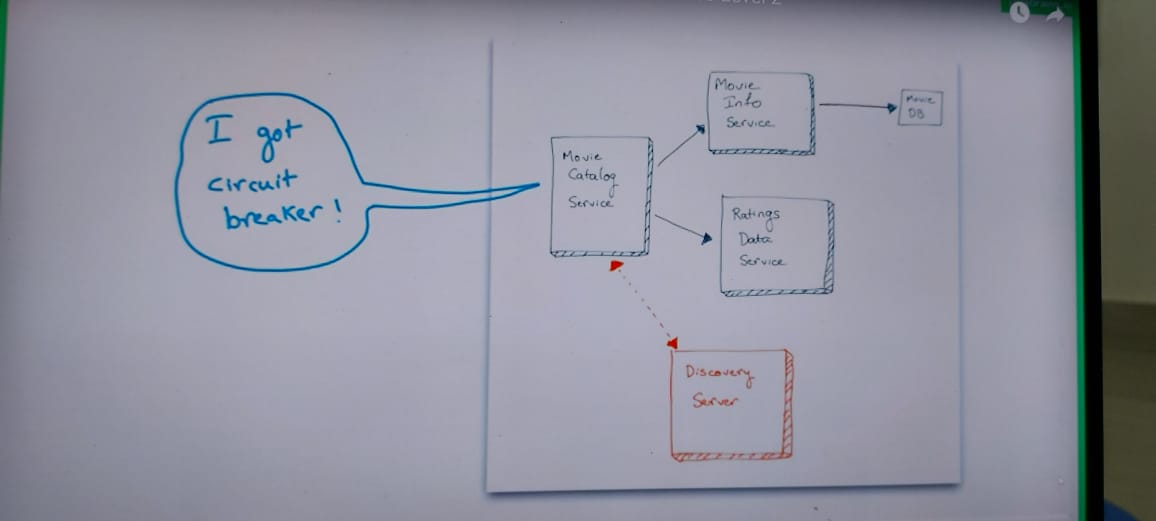 I got
circuit
breaker!
Movie
Catalog
Service
Movie
Info
Service
Movie
DB
Ratings
Data
Service
Discovery
Server